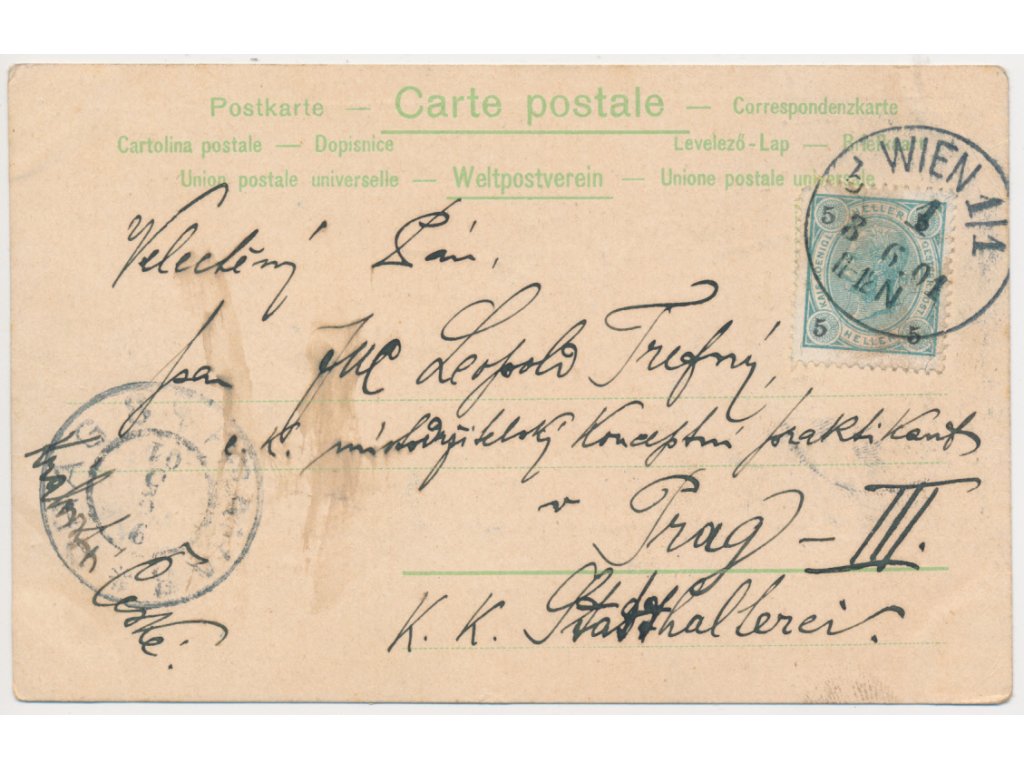 Postkarte — Carte postale — Correspondenzkarte
Cartolina postale — Dopisnice Levelező-Lap — Briefkaart
Union postale universelle — Weltpostverein — Unione postale universale
WIEN 1/1
8 6.01
11-12 N
5 HELLER 5
5 HELLER 5
Velectěný Pán,
pan JUC Leopold Trefný,
c. k. místodržitelský konceptní praktikant
v
Prag — III.
K. K. Statthalterei.